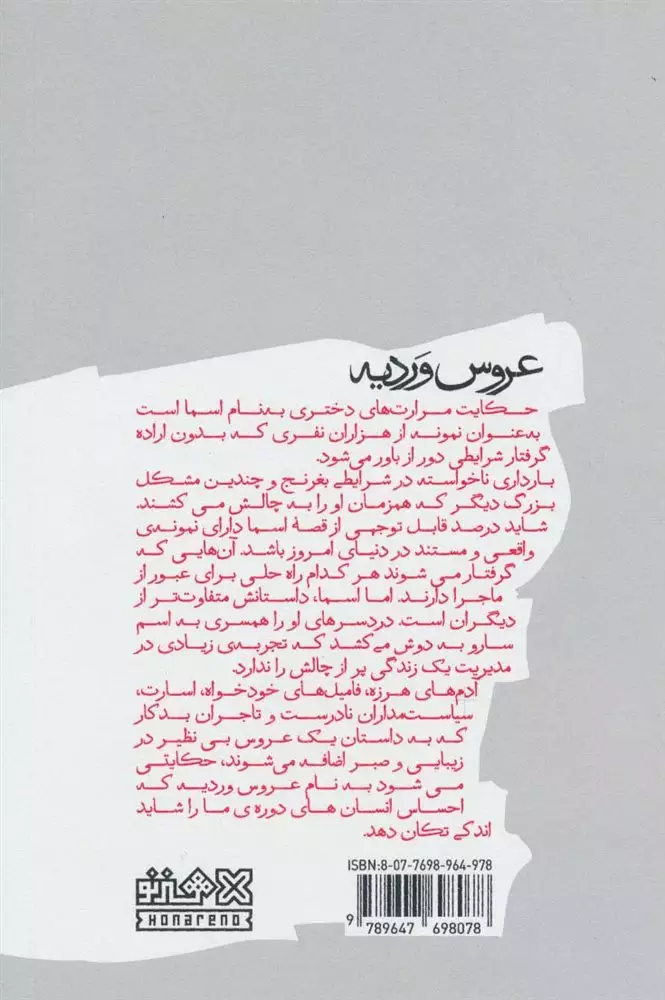 عروس وَردیه
حکایت مرارت‌های دختری به‌نام اسما است
به‌عنوان نمونه از هزاران نفری که بدون اراده
گرفتار شرایطی دور از باور می‌شود.
بارداری ناخواسته در شرایطی بغرنج و چندین مشکل
بزرگ دیگر که همزمان او را به چالش می کشند.
شاید درصد قابل توجهی از قصهٔ اسما دارای نمونه‌ی
واقعی و مستند در دنیای امروز باشد. آن‌هایی که
گرفتار می شوند هر کدام راه حلی برای عبور از
ماجرا دارند. اما اسما، داستانش متفاوت‌تر از
دیگران است. دردسرهای او را همسری به اسم
سارو به دوش می‌کشد که تجربه‌ی زیادی در
مدیریت یک زندگی پر از چالش را ندارد.
آدم‌های هرزه، فامیل‌های خودخواه، اسارت،
سیاست‌مداران نادرست و تاجران بدکار
که به داستان یک عروس بی نظیر در
زیبایی و صبر اضافه می‌شوند، حکایتی
می شود به نام عروس وردیه که
احساس انسان های دوره ی ما را شاید
اندکی تکان دهد.
ISBN:8-07-7698-964-978
9 789647 698078
هنرنو
Honareno